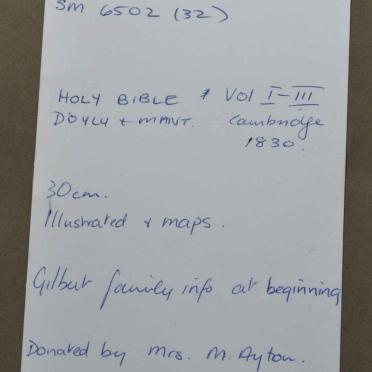 SM 6502 (32)
HOLY BIBLE * Vol I-III
DOYLY + MANT. Cambridge
1830.
30cm.
Illustrated + maps.
Gilbert family info at beginning
Donated by Mrs. M. Ayton.